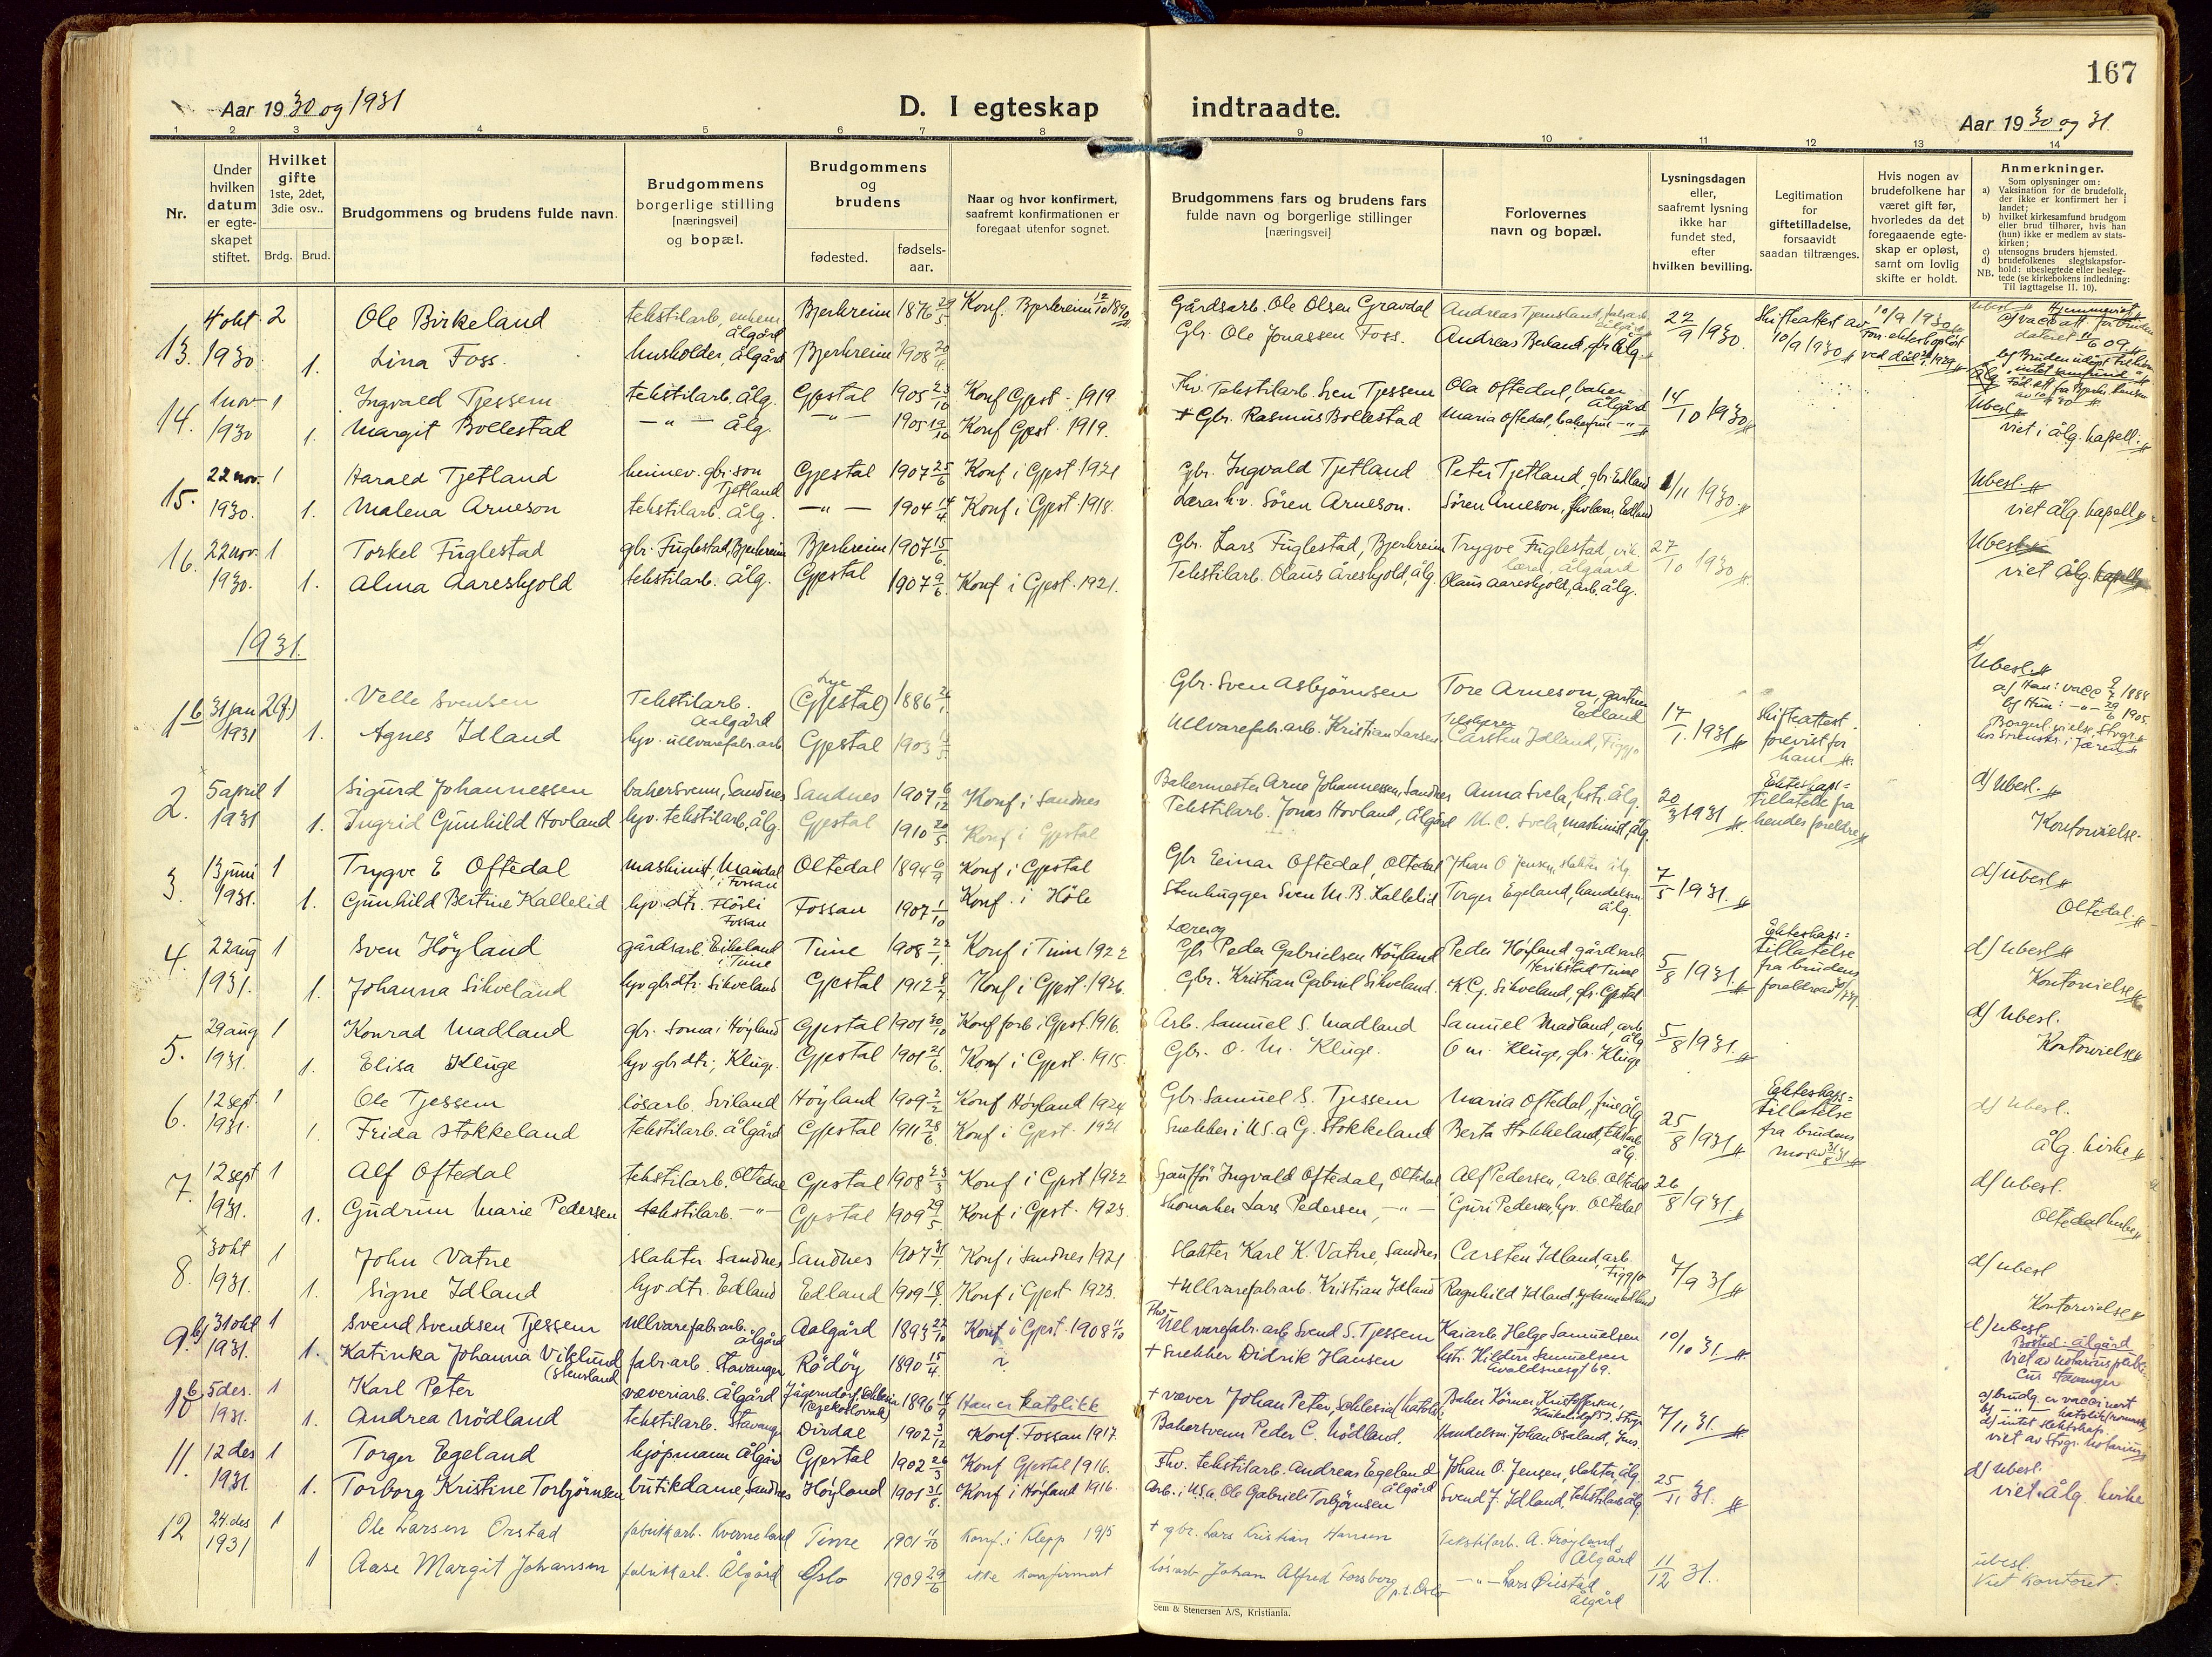 167
Aar 1930 og 1931
D. I egteskap indtraadte.
Aar 1930 og 31.
1 2 3 4 5 6 7 8 9 10 11 12 13 14
Nr.
Under hvilken datum er egte-skapet stiftet.
Hvilket gifte 1ste, 2det, 3die osv..
Brdg. Brud.
Brudgommens og brudens fulde navn.
Brudgommens borgerlige stilling [næringsvei] og bopæl.
Brudgommens og brudens
fødested. fødsels-aar.
Naar og hvor konfirmert, saafremt konfirmationen er foregaat utenfor sognet.
Brudgommens fars og brudens fars fulde navn og borgerlige stillinger [næringsvei]
Forlovernes navn og bopæl.
Lysningsdagen eller, saafremt lysning ikke har fundet sted, efter hvilken bevilling.
Legitimation for giftetilladelse, forsaavidt saadan tiltrænges.
Hvis nogen av brudefolkene har været gift før, hvorledes da det foregaaende egte-skap er opløst, samt om lovlig skifte er holdt.
Anmerkninger.
Som oplysninger om:
a) Vaksination for de brudefolk, der ikke er konfirmert her i landet;
b) hvilket kirkesamfund brudgom eller brud tilhører, hvis han (hun) ikke er medlem av stats-kirken;
c) utensogns bruders hjemsted.
d) brudefolkenes slegtskapsfor-hold: ubeslegtede eller besleg-tede (se kirkebokens indledning:
NB. Til iagttagelse II. 10).
13. 4 okt 1930. 2 Ole Birkeland tekstilarb, enkem. Ålgård Bjerkreim 1876 29/5 Konf. Bjerkreim 12/10 1890 Gårdsarb. Ole Olsen Gravdal Andreas 22/9 1930. Skifteattest av 10/9 1930
1. Lina Foss. husholder, Ålgård Bjerkreim 1908 Gbr. Ole Jonassen Foss. Andreas Berland, gbr. Ålg.
14. 1 nov 1930 1 Ingvald Tjessem tekstilarb. Ålg. Gjestal 1905 23/10 Konf Gjest. 1919 Fhv. Tekstilarb. Sven Tjessem Ola Oftedal, baker Ålgård 14/10 1930 Ubesl.
1. Margit Bollestad – " – Ålg. – " – 1905 19/10 Konf Gjest. 1919. + Gbr. Rasmus Bollestad Maria Oftedal, bakerfrue – " – viet i Ålg. kapell.
15. 22 nov. 1930. 1 Harald Tjetland heimev. gbr. son Tjetland Gjestal 1907 25/6 Konf i Gjest 1921 Gbr. Ingvald Tjetland Peter Tjetland, gbr Edland 1/11 1930. Ubesl.
1. Malena Arneson tekstilarb. Ålg. – " – 1904 14/4 Konf i Gjest. 1918. Lærer h.v. Sören Arneson. Sören Arneson, fhv lærer, Edland viet Ålg. kapell
16. 22 nov. 1930. 1 Torkel Fuglestad gbr. Fuglestad, Bjerkreim Bjerkreim 1907 15/6 Gbr. Lars Fuglestad, Bjerkreim Trygve Fuglestad, vik. lærer, Ålgaard 27/10 1930 Ubesl.
1. Alma Aareskjold tekstilarb. Ålg. Gjestal 1907 9/6 Konf i Gjest. 1921. Tekstilarb. Olaus Åreskjold, Ålg. Olaus Aareskjold, arb. Ålg. viet Ålg. kapell
1931.
1 b 31 jan 1931 2(f.) Velle Svendsen Tekstilarb. Aalgård Lye (Gjestal) 1886 Gbr. Sven Asbjörnsen Tore Arneson, gartner Edland 17/1. 1931 Skifteattest forevist for ham Ubesl.
1. Agnes Idland hjv. ullvarefabr. arb Gjestal 1903 Ullvarefabr. arb. Kristian Larsen. Carsten Idland, Figgjo
2. 5 april 1931 1 Sigurd Johannessen bakersvenn, Sandnes Sandnes 1907 6/12 Konf i Sandnes Bakermester Arne Johannessen, Sandnes Anna Svela, hstr. Ålg. 20/3 1931 Ekteskaps=tillatelse fra hendes foreldre d) Ubesl.
1. Ingrid Gunhild Hovland hjv. tekstilarb, Ålg. Gjestal 1910 20/5 Konf i Gjestal Tekstilarb. Jonas Hovland, Ålgård M. C. Svela, maskinist, Ålg. Kontorvielse.
3 13 juni 1931. 1 Trygve E Oftedal maskinist, Maudal i Fossan Oltedal 1894 6/9 Konf i Gjestal Gbr Einar Oftedal, Oltedal Johan O Jensen, slakter Ålg 7/5 1931. d) ubesl
1. Gunhild Bertine Kallelid hjv dtr. Flörli Fossan Fossan 1907 1/10 Konf. i Höle Stenhugger Sven M. B. Kallelid Torger Egeland, handelsm. Ålg. Oltedal.
4. 22 aug 1931. 1 Sven Höyland gårdsarb. Eikeland i Time Time 1908 22/1 Konf i Time 1922 Lærer og Gbr Peder Gabrielsen Höyland Peder Höyland, gårdsarb. Time 5/8 1931. Ekteskaps=tillatelse fra brudens foreldre d) ubesl
1. Johanna Sikveland hjv gbrdtr. Sikveland Gjestal 1912 Konf i Gjest. 1926. Gbr. Kristian Gabriel Sikveland. K. G. Sikveland, gbr. Gjestal Kontorvielse
5. 29 aug 1931. 1 Konrad Madland gbr. Soma i Höyland Gjestal 1901 30/10 Konf forb i Gjest. 1916. Arb. Samuel S. Madland Samuel Madland, arb. Ålg 5/8 1931. d) ubesl.
1. Elisa Kluge hjv gbrdtr, Kluge. Gjestal 1901 21/6. Konf i Gjest. 1915. Gbr. O. M. Kluge. O m. Kluge, gbr. Kluge Kontorvielse
6. 12 sept. 1931. 1 Ole Tjessem lösarb. Sviland Höyland 1909 2/2 Konf Höyland 1924 Gbr. Samuel S. Tjessem Maria Oftedal, frue Ålg 25/8 1931 Egteskaps=tillatelse fra brudens mor d) ubesl.
1. Frida Stokkeland tekstilarb. Ålgård Gjestal 1911 28/6 Konf i Gjest. Snekker i U.S.a G. Stokkeland Berta Stokkeland, Ålg. Ålg. kirke
7. 12 sept 1931. 1 Alf Oftedal tekstilarb. Oltedal Gjestal 1908 23/3 Konf i Gjest 1922 Ingvald Oftedal, Oltedal Alf Pedersen, arb. Oltedal 26/8 1931. d) ubesl.
1. Gudrun Marie Pedersen tekstilarb. – " – Gjestal 1909 29/5 Konf i Gjest. 1923. Skomaker Lars Pedersen, – " – Guri Pedersen, hjv. Oltedal Oltedal kirke
8. 3 okt 1931. 1 John Vatne slakter Sandnes Sandnes 1907 31/1 Konf i Sandnes 1921 Slakter Karl K. Vatne, Sandnes Carsten Idland, arb. Figgjo 7/9 31 d) ubesl
1. Signe Idland hjv. dtr. Edland Edland 1909 18/1. Konf i Gjest 1923. + Ullvarefabr arb. Kristian Idland Ragnhild Idland, Kontorvielse
9. b) 31 okt 1931. 1 Svend Svendsen Tjessem Ullvarefabr. arb. Ålgård Aalgård 1893 27/10 Konf i Gjest. 1908 11/10 Fhv. Ullvarefabr. arb Svend S. Tjessem Kaiarb. Helge Samuelsen 10/10 31. d) ubesl Bosted: Ålgård
1. Katinka Johanna Viklund (Stensland fabr arb. Stavanger Rödöy 1890 15/4. + Snekker Didrik Hansen hstr. Hildur Samuelsen viet av notarius publicus Stavanger
10 b 5 des. 1931. 1 Karl Peter væveriarb. Ålgård Jägerndorf, Schlesien (Czekoslovak) 1896 Han er katolikk + væver Johan Peter, Schlesia (katolik Baker Körner Kristoffersen, Stvgr. 7/11 31. a) brudg. er vaccinert
1. Andrea Nödland tekstilarb. Stavanger Dirdal 1902 Konf. Fossan 1917. Bakersvenn Peder C. Nödland. Handelsm. Johan Osaland, viet av Stvgr. Notarius
11. 12 des 1931. 1 Torger Egeland kjöpmann Ålgård Gjestal 1902 26/3 Konf Gjestal 1916. Fhv. tekstilarb. Andreas Egeland Ålgård Johan O. Jensen, slakter, Ålg. 25/11 31. d) ubesl.
1. Torborg Kristine Torbjörnsen butikdame, Sandnes Höyland 1901 31/8. Konf i Höyland 1916. Arb. i U.S.a. Ole Gabriel Torbjörnsen Svend J. Idland, tekstilarb Ålg. viet. Ålg. kirke
12 24. des 1931 1 Ole Larsen Orstad fabrikkarb. Kverneland Time 1901 Konf. i Klepp 1915 + gbr. Lars Kristian Hansen Tekstilarb. A. Fröyland, Ålgård 11/12 31. ubesl.
1 Aase Margit Johansen fabrikkarb. Ålgård Oslo 1909 29/6 ikke konfirmert lösarb Johan Alfred Forsberg p.t. Oslo – " – Lars Orstad Ålgård Viet Kontoret.
Sem & Stenersen A/S, Kristiania.